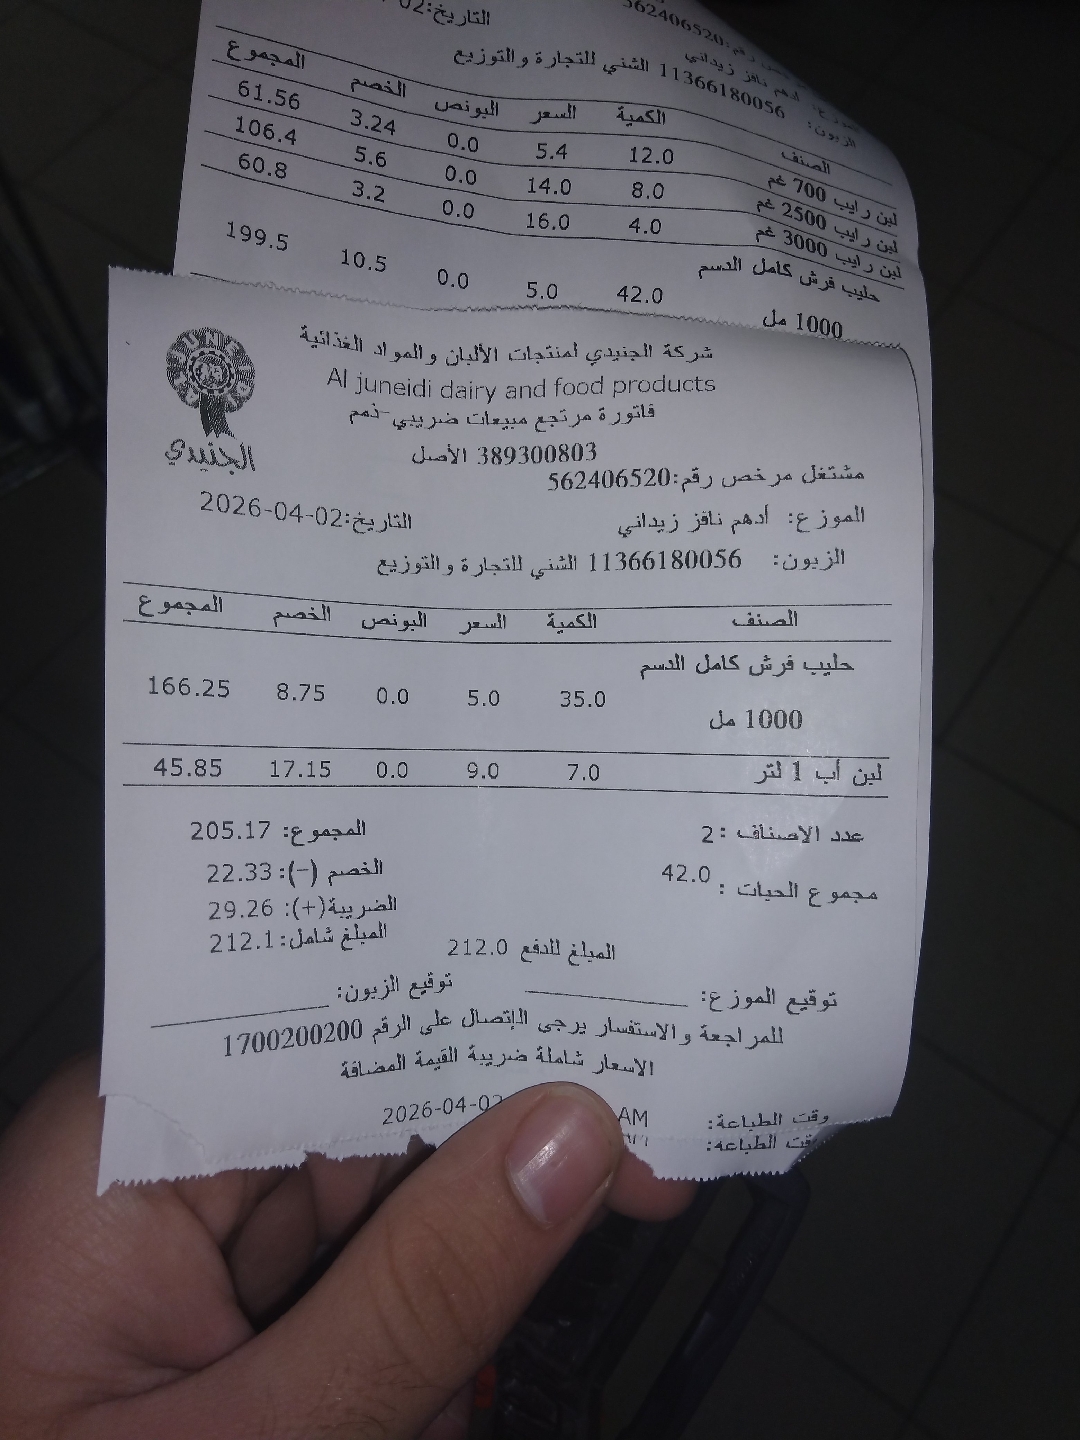 562406520
التاريخ:02
أدهم نافز زيداني
الزبون: 11366180056 الشني للتجارة والتوزيع
الصنف الكمية السعر البونص الخصم المجموع
لبن رايب 700 غم 12.0 5.4 0.0 3.24 61.56
لبن رايب 2500 غم 8.0 14.0 0.0 5.6 106.4
لبن رايب 3000 غم 4.0 16.0 0.0 3.2 60.8
حليب فرش كامل الدسم
1000 مل 42.0 5.0 0.0 10.5 199.5
شركة الجنيدي لمنتجات الألبان والمواد الغذائية
Al juneidi dairy and food products
الجنيدي
فاتورة مرتجع مبيعات ضريبي-ذمم
389300803 الأصل
مشتغل مرخص رقم:562406520
الموزع: أدهم نافز زيداني التاريخ:2026-04-02
الزبون: 11366180056 الشني للتجارة والتوزيع
الصنف الكمية السعر البونص الخصم المجموع
حليب فرش كامل الدسم
1000 مل 35.0 5.0 0.0 8.75 166.25
لبن أب 1 لتر 7.0 9.0 0.0 17.15 45.85
عدد الاصناف : 2 المجموع: 205.17
مجموع الحبات : 42.0 الخصم (-): 22.33
الضريبة(+): 29.26
المبلغ للدفع 212.0 المبلغ شامل: 212.1
توقيع الموزع: توقيع الزبون:
للمراجعة والاستفسار يرجى الإتصال على الرقم 1700200200
الاسعار شاملة ضريبة القيمة المضافة
وقت الطباعة: 2026-04-02 AM
وقت الطباعة: